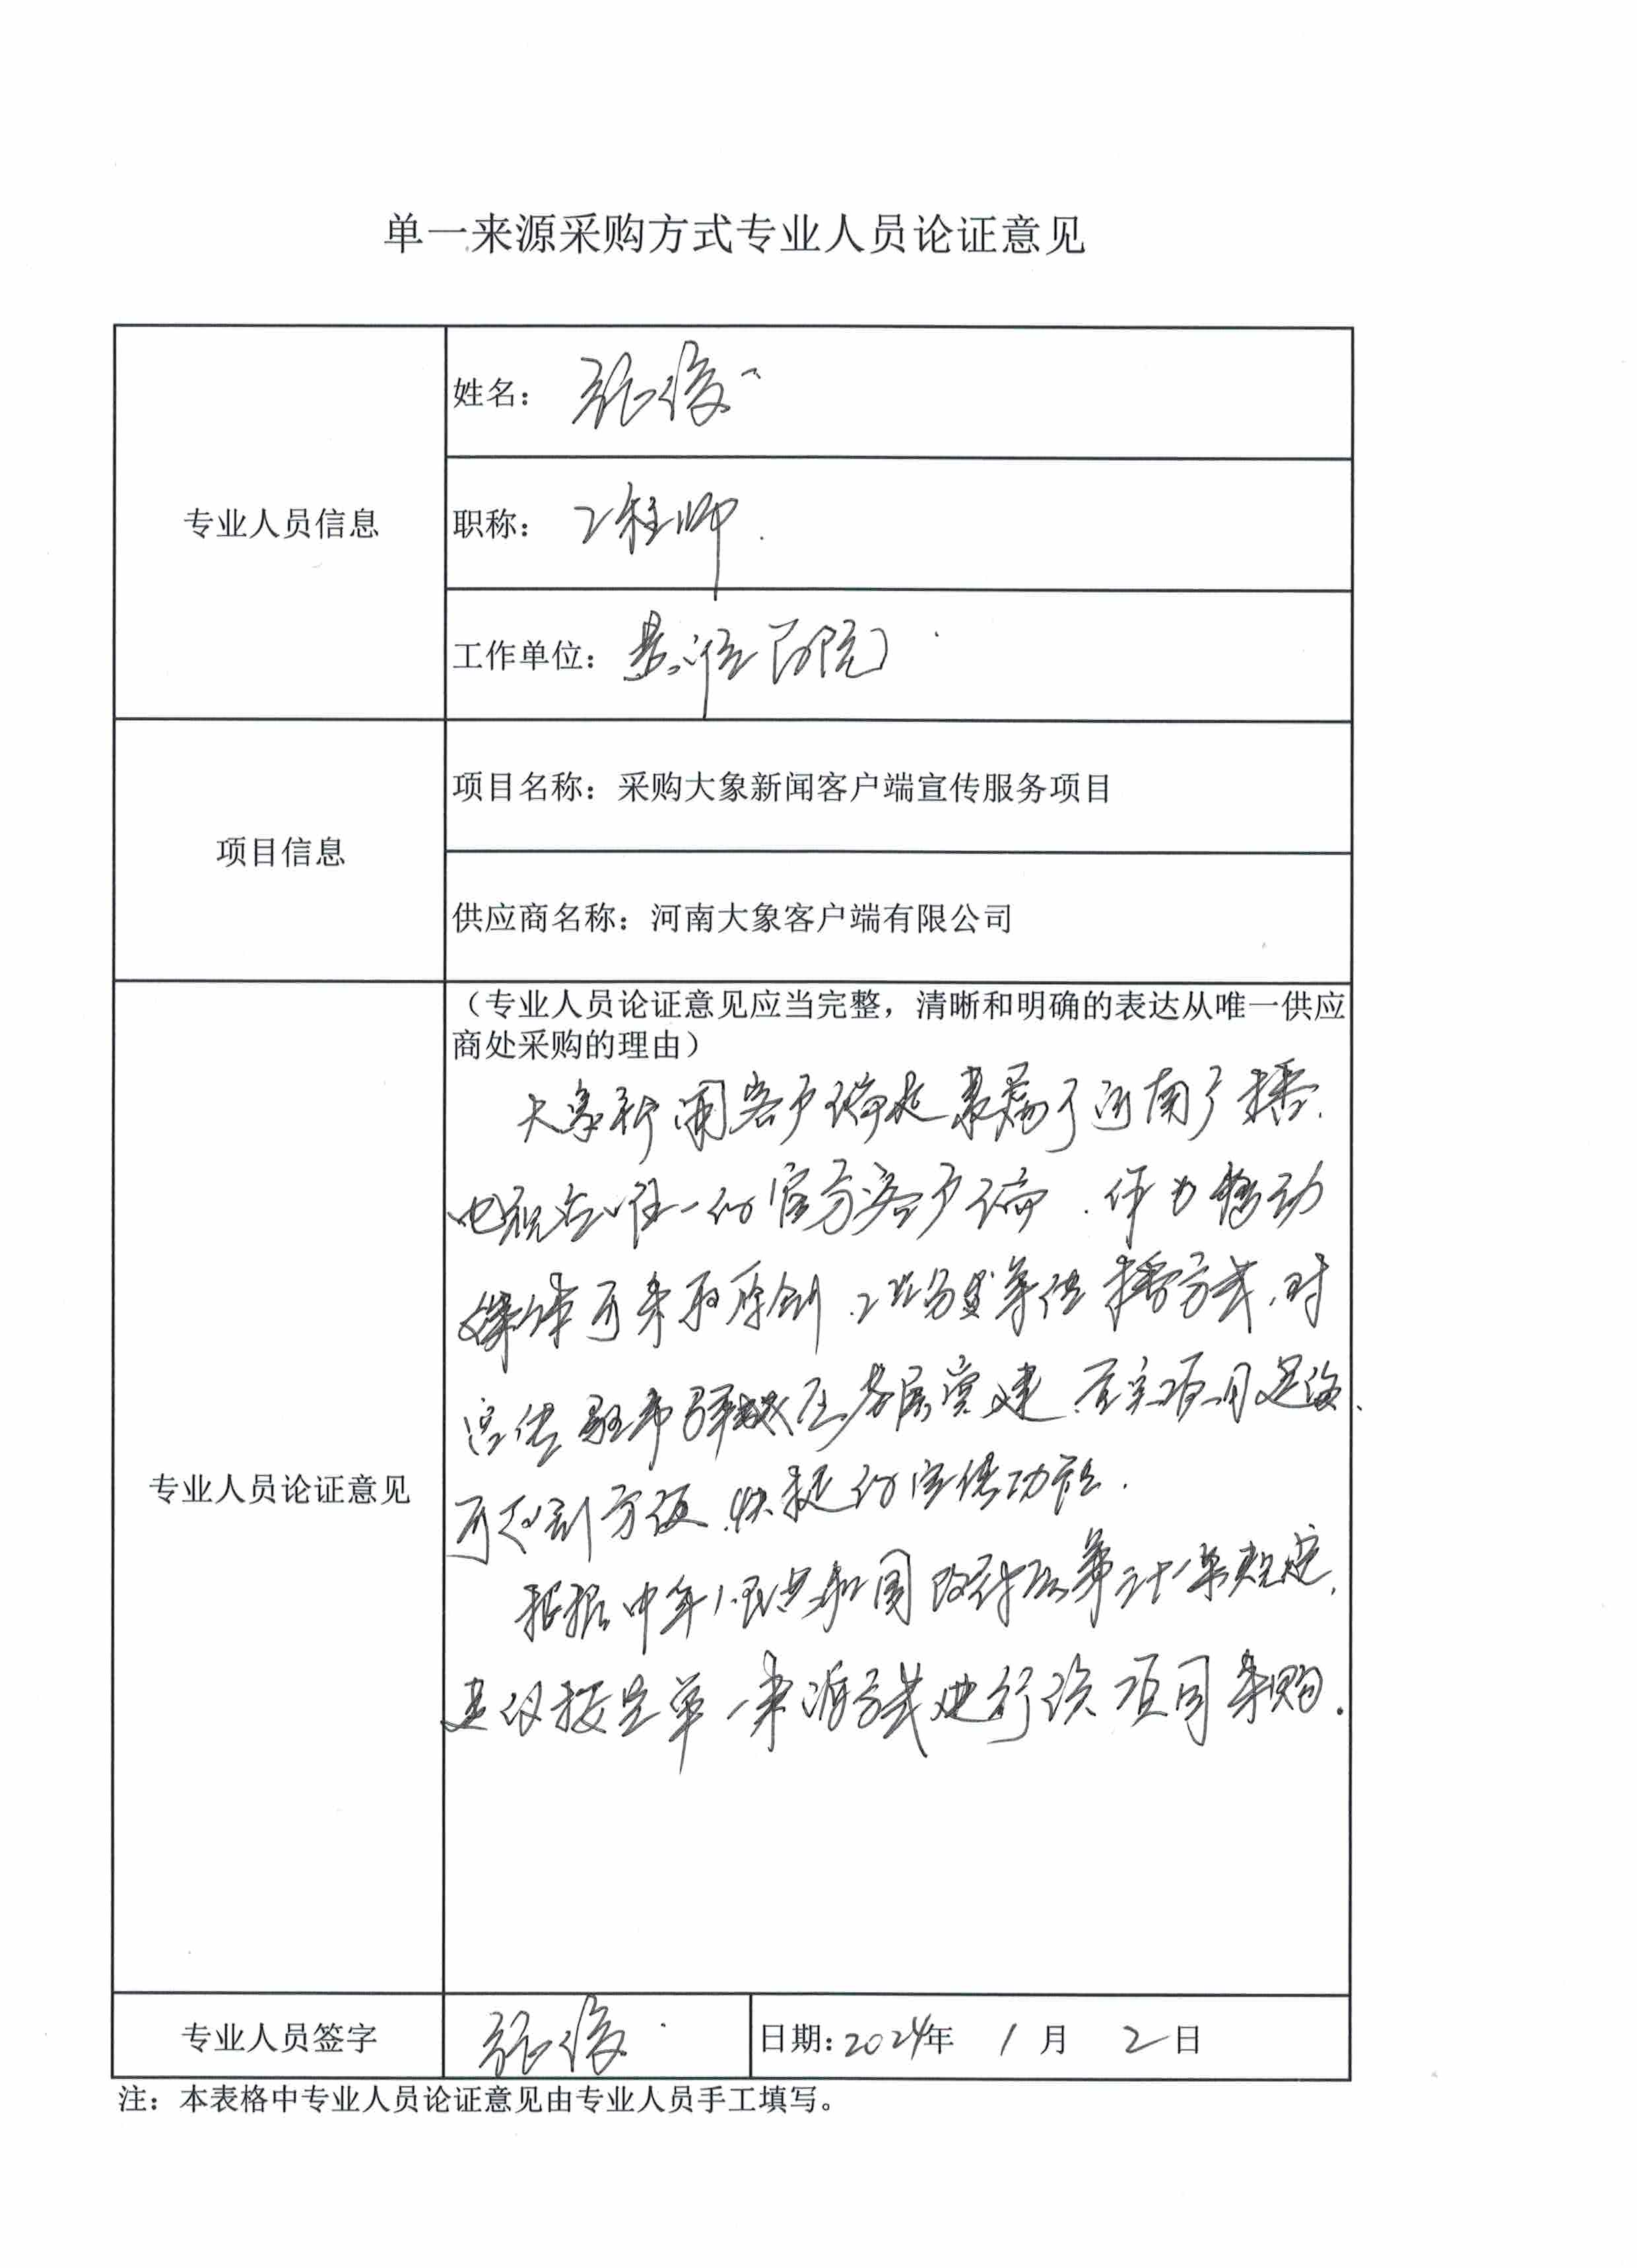 单一来源采购方式专业人员论证意见
专业人员信息
姓名：张俊
职称：工程师
工作单位：医院
项目信息
项目名称：采购大象新闻客户端宣传服务项目
供应商名称：河南大象客户端有限公司
专业人员论证意见
（专业人员论证意见应当完整，清晰和明确的表达从唯一供应
商处采购的理由）
大象新闻客户端是隶属于河南广播
电视台唯一的官方客户端，作为移动
媒体可采取原创、等传播方式，对
宣传驻市驿城区基层党建、项目建设
可起到方便、快捷的宣传功能.
根据中华人民共和国政采法第三十一条规定，
建议按照单一来源方式进行该项目采购.
专业人员签字
张俊
日期：2024年 1月 2日
注：本表格中专业人员论证意见由专业人员手工填写。